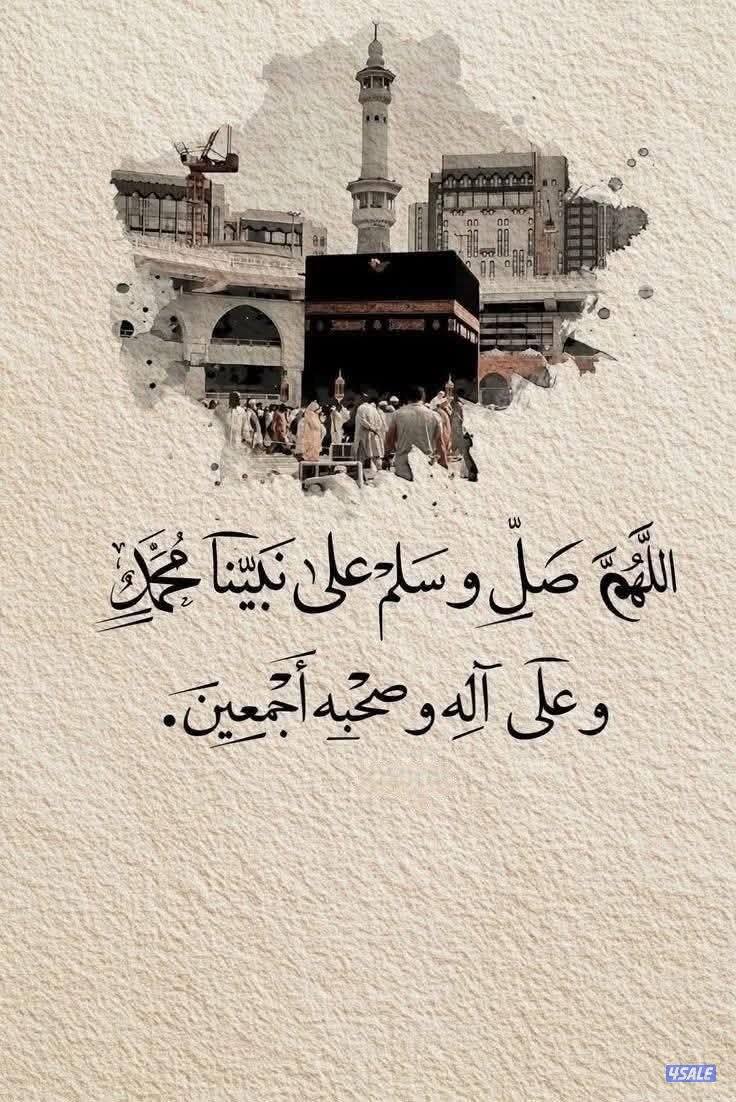 اللَّهُمَّ صَلِّ وسَلمْ علىٰ نَبيّنَا مُحَمَّدٍ
وعَلَى آلِهِ وصَحْبِهِ أَجْمَعِينَ.
4SALE